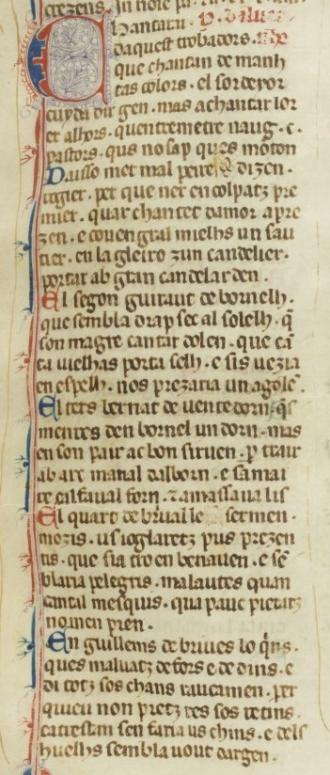 crezens. In nom pa
hantarai. P. daluer
daquest trobadors.
que chantan de manh
tas colors. el sordeyor
cuyda dir gen. mas achantar lor
er alhors. quentremetre naug. c.
pastors. qus no sap ques moton
Daisso met mal peire. dizen.
rogier. per que ner encolpatz pre
mier. quar chantet damor apre
zen. e covengral mielhs un sau
tier. en la gleizo zun candelier.
portar ab gran candelarden.
El segon guiraut de bornelh.
que sembla drap sec al solelh. q̃
son magre cantar dolen. que cã
ta vielhas porta selh. e sis vezia
en espelh. nos prezaria un agolẽ.
El ters bernat de ventedorn. q̃s
menres den bornel un dorn. mas
en son pair ac bon sirven. p trair
ab arc manal dalborn. e sa mai
re calfaval forn. z amassava lis
El quart de brival le sermen.
mozis. us ioglaretz pus prezen
tis. que sia tro en benaven. e sẽ
blaria pelegris. malautes quan
cantal mesquis. qua pauc pietatz
nomen pren.
En guillems de brives lo qĩns.
ques malvatz defors e de dins. e
di totz sos chans raucamen. per
quieu non pretz res sos retins.
catrestan sen faria us chins. e dels
huelhs sembla vout dargen.